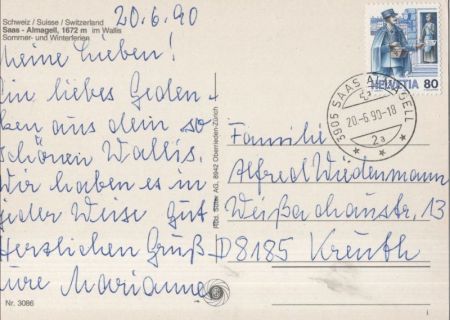 20.6.90
Schweiz / Suisse / Switzerland
Saas - Almagell, 1672 m im Wallis
Sommer- und Winterferien
Meine Lieben!
Ein liebes Geden-
ken aus dem so
schönen Wallis.
Wir haben es in
jeder Weise gut
Herzlichen Gruß
Eure Marianne
Nr. 3086
Rud. Suter AG, 8942 Oberrieden-Zürich
HELVETIA 80
3905 SAAS ALMAGELL
20-6.90-18
2a
Familie
Alfred Wiedenmann
Weißachaustr. 13
D8185 Kreuth